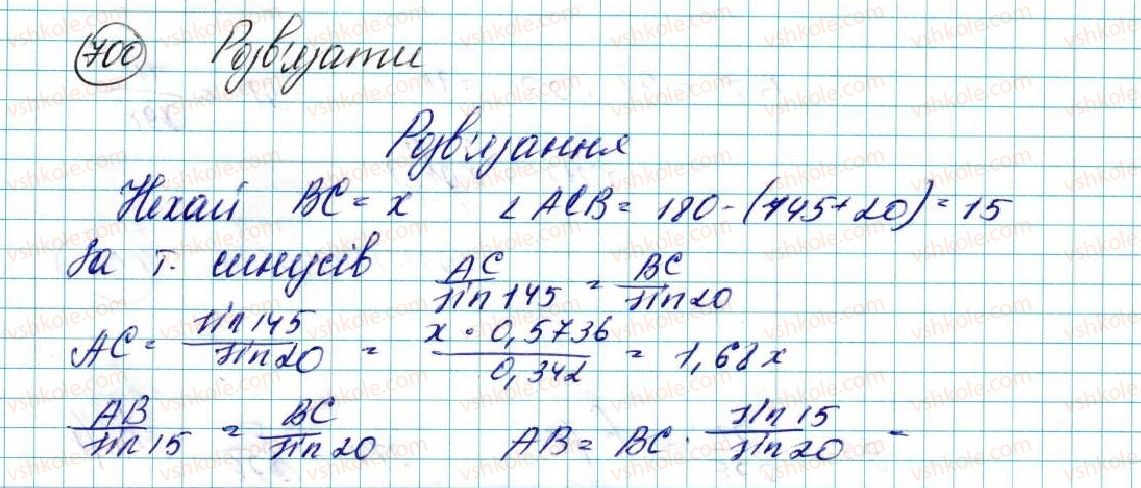 700 Розв'язати
Розв'язання
Нехай BC = x ∠ ACB = 180 - (145 + 20) = 15
За т. синусів AC/sin 145 = BC/sin 20
AC = sin 145/sin 20 = x · 0,5736/0,342 = 1,68x
AB/sin 15 = BC/sin 20 AB = BC · sin 15/sin 20 =
vshkole.com